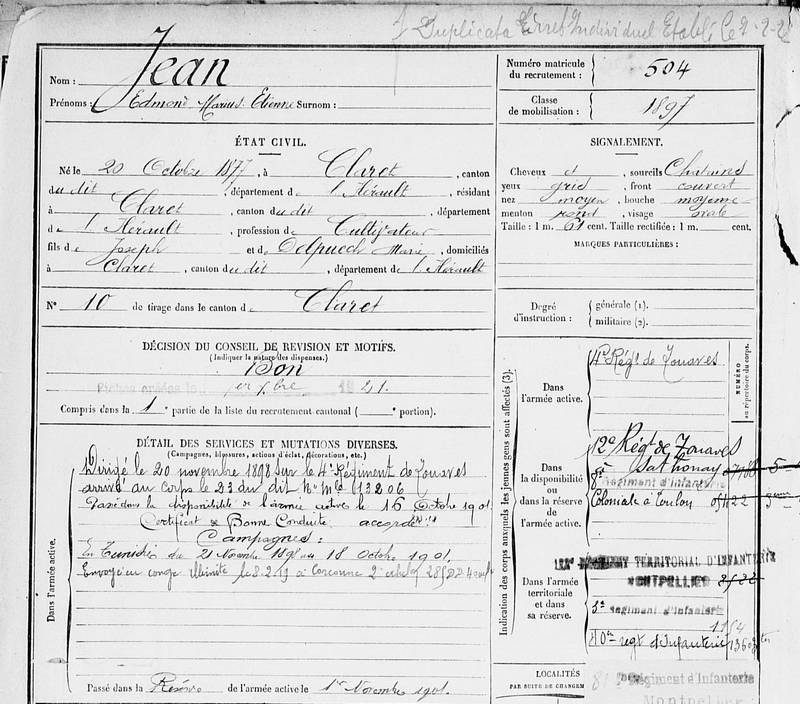 Duplicata Livret Individuel Etabli le
Nom : Jean
Prénoms : Edmond Marius Etienne Surnom :
Numéro matricule du recrutement : 504
Classe de mobilisation : 1897
ÉTAT CIVIL.
Né le 20 Octobre 1877, à Claret, canton
du dit, département de l'Hérault, résidant
à Claret, canton du dit, département
de l'Hérault, profession de Cultivateur
fils de Joseph et de Delpuech Marie, domiciliés
à Claret, canton du dit, département de l'Hérault
N° 10 de tirage dans le canton de Claret
SIGNALEMENT.
Cheveux et, sourcils Chatains
yeux gris, front couvert
nez moyen, bouche moyenne
menton rond, visage ovale
Taille : 1 m. 61 cent. Taille rectifiée : 1 m. cent.
MARQUES PARTICULIÈRES :
Degré d'instruction : générale (1).
militaire (2).
DÉCISION DU CONSEIL DE REVISION ET MOTIFS.
(Indiquer la nature des dispenses.)
Bon
1921.
Compris dans la 1e partie de la liste du recrutement cantonal ( e portion).
DÉTAIL DES SERVICES ET MUTATIONS DIVERSES.
(Campagnes, blessures, actions d'éclat, décorations, etc.)
Dans l'armée active.
Dirigé le 20 novembre 1898 sur le 4e Régiment de Zouaves
arrivé au corps le 23 du dit No Mle 13206
Passé dans la disponibilité de l'armée active le 16 Octobre 1901
Certificat de Bonne Conduite accordé
Campagnes :
En Tunisie du 21 Novembre 1898 au 18 Octobre 1901
Envoyé en congé illimité le 8.2.19
Passé dans la Réserve de l'armée active le 1er Novembre 1901.
Indication des corps auxquels les jeunes gens sont affectés (3).
NUMÉRO au répertoire du corps.
Dans l'armée active.
4e Régt de Zouaves
Dans la disponibilité ou dans la réserve de l'armée active.
2e Régt de Zouaves
Sathonay
Régiment d'Infanterie
Coloniale à Toulon
Dans l'armée territoriale et dans sa réserve.
RÉGIMENT TERRITORIAL D'INFANTERIE
MONTPELLIER
Régiment d'Infanterie
40me régt d'Infanterie
LOCALITÉS
PAR SUITE DE CHANGEM
81e Régiment d'Infanterie
Montpellier